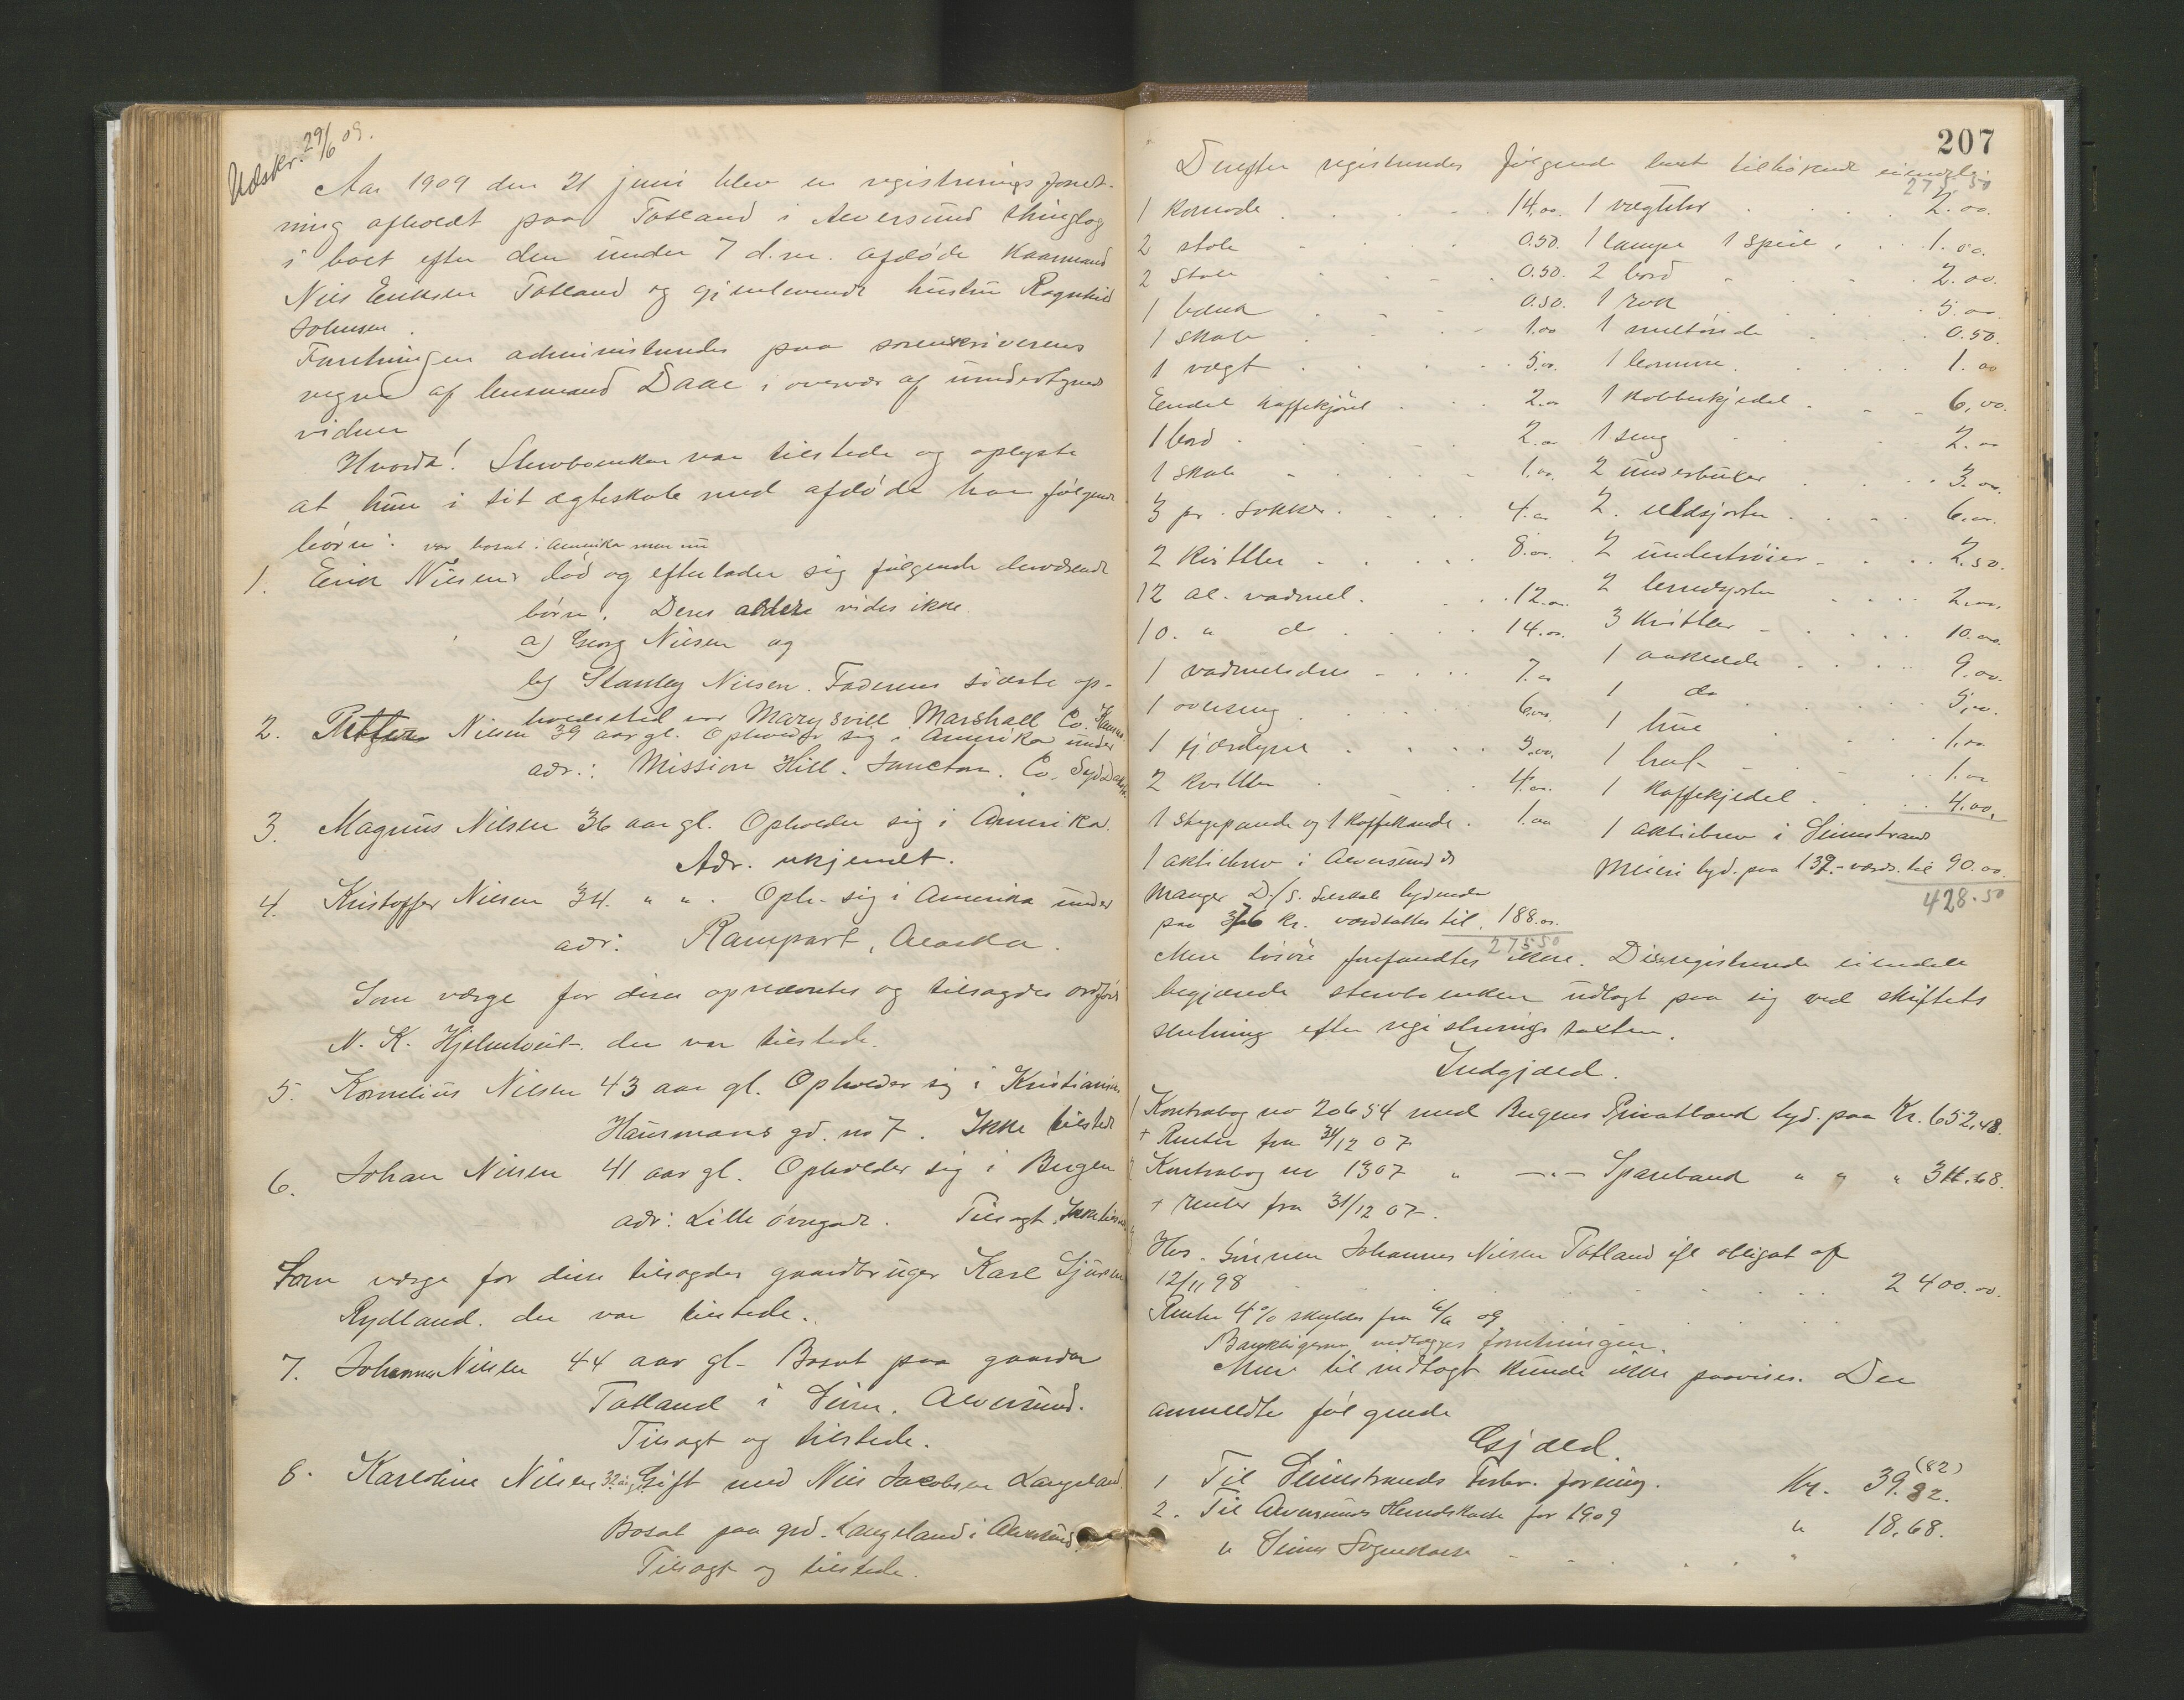 Udskr. 29/6 09.
Aar 1909 den 21 juni blev en registreringsforret-
ning afholdt paa Totland i Alversund thinglag
i boet efter den under 7 d.m. afdøde kaarmand
Nils Eriksen Totland og gjenlevende hustru Ragnhild
Johnsen.
Forretningen administreredes paa sorenskriverens
vegne af lensmand Daae i overvær af undertegnede
vidner
Hvorda! Stervboenken var tilstede og oplyste
at hun i sit ægteskab med afdøde har følgende
børn: var bosat i Amerika men nu
1. Erik Nilsen død og efterlader sig følgende
børn. Deres aldere vides ikke.
a) Georg Nilsen og
b) Stanley Nilsen. Faderens sidste op-
holdssted var Marysvill Marshall Co. Kansas.
2. Petter Nilsen 39 aar gl. Opholder sig i Amerika under
adr.: Mission Hill. Jancton. Co. Syd Dakota.
3. Magnus Nilsen 36 aar gl. Opholder sig i Amerika.
Adr. ukjendt.
4. Kristoffer Nilsen 34. " ". Oph. sig i Amerika under
adr: Rampart, Alaska.
Som værge for disse opnævntes og tilsagdes ordfører
N. K. Hjelmtveit. der var tilstede.
5. Kornelius Nilsen 43 aar gl. Opholder sig i Kristiania
Hausmans gd. no 7. Ikke tilstede
6. Johan Nilsen 41 aar gl. Opholder sig i Bergen
adr: Lille øvregade. Tilsagt. Ikke tilstede
Som værge for disse tilsagdes gaardbruger Karl Sjursen
Rydland. der var tilstede.
7. Johannes Nilsen 44 aar gl. Bosat paa gaarden
Totland i Seim, Alversund.
Tilsagt og tilstede.
8. Karoline Nilsen 32 aar Gift med Nils Jacobsen Langeland.
Bosat paa grd. Langeland i Alversund.
Tilsagt og tilstede.
207
Derefter registreredes følgende boet tilhørende eiendele:
275 50
1 komode 14.00. 1 vægtuhr 2.00.
2 stole 0.50. 1 lampe 1 speil 1.00.
2 stole 0.50. 2 bord 2.00.
1 bænk 0.50. 1 rok 5.00.
1 skab 1.00 1 meltønde 0.50.
1 vægt 5.00. 1 lomme 1.00
Endel kaffekjørel 2.00 1 kobberkjedel 6.00.
1 bord 2.00 1 seng 2.00
1 skab 1.00. 2 underbuxer 3.00.
3 pr. sokker. 4.00 2. uldsjorter 6.00.
2 kvittler 8.00. 2 undertrøier 2.50.
12 al. vadmel. 12.00 2 lerredsjorter 2.00.
10. " do 14.00. 3 kvittler 10.00.
1 vadmelsdres 7.00 1 aaklæde 9.00.
1 overseng 6.00. 1 do 5.00.
1 fjærdyne 5.00. 1 hue 1.00
2 kvittler 4.00. 1 hat 1.00
1 stegepande og 1 kaffekande. 1.00 1 kaffekjedel 4.00.
1 aktiebrev i Alversund &
Manger D/S. Selskab lydende
paa 376 kr. værdsattes til 188.00.
275 50
1 aktiebrev i Seimstrand
Meieri lyd. paa 132.- værds. til 90.00.
428.50
Mere løsøre forefandtes ikke. De registrerede eiendele
begjærede stervboenken udlagt paa sig ved skiftets
slutning efter registreringstaxten.
Indgjæld.
1 Kontrabog no 20654 med Bergens Privatbank lyd. paa Kr. 652,48.
+ Renter fra 31/12 07
Kontrabog no 1307 " —"— Sparebank " " "
+ renter fra 31/12 07.
Hos. Sønnen Johannes Nilsen Totland ifl obligat af
12/11 98 2 400.00.
Renter 4% skyldes fra 6/6 09
Bankbøgerne vedlægges forretningen.
Mere til indtægt kunde ikke paavises. Der
anmeldte følgende
Gjæld.
1 Til Seimstrands Forbr. forening. Kr. 39.82. (82)
2. Til Alversunds Herredskasse for 1909 " 18,68.
" Seims Sognekasse